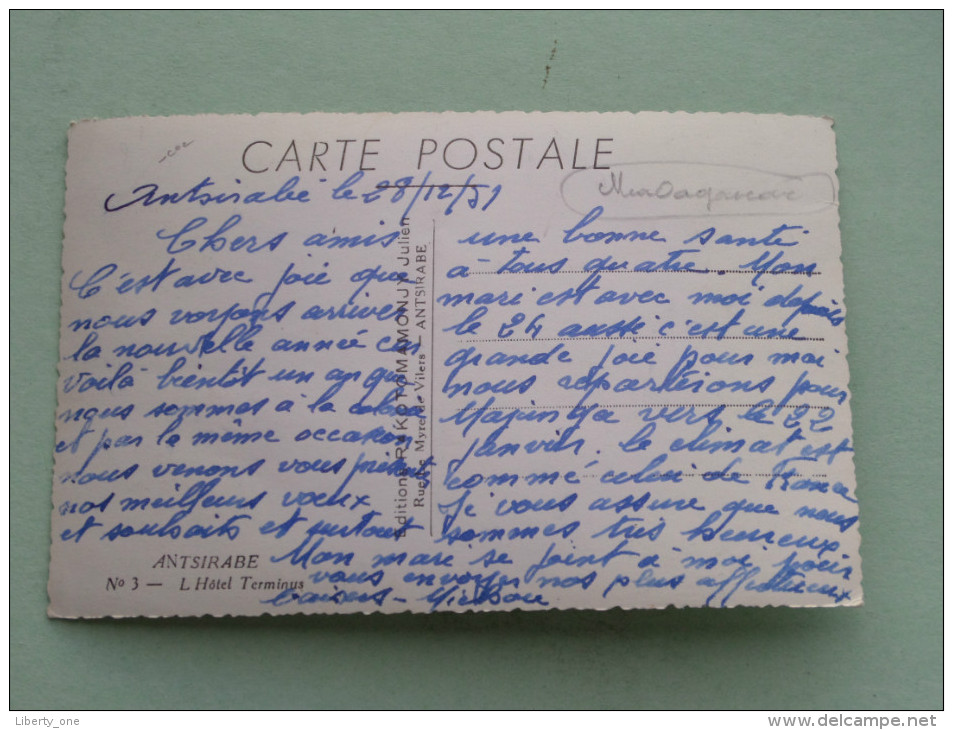 CARTE POSTALE
Madagascar
Antsirabé le 28/12/51
Chers amis
C'est avec joie que
nous voyons arriver
la nouvelle année car
voilà bientôt un an que
nous sommes à la
et par la même occasion
nous venons vous
nos meilleurs vœux
et souhaits et surtout
une bonne santé
à tous quatre. Mon
mari est avec moi depuis
le 24 aussi c'est une
grande joie pour moi
nous repartirons pour
Majunga vers le 22
janvier. le climat est
comme celui de France
Je vous assure que nous
sommes très heureux
Mon mari se joint à moi pour
vous envoyer nos plus affectueux
baisers -
Editions RAKOTOMAMONJY Julien
Rue Myre de Vilers — ANTSIRABE
ANTSIRABE
No 3 — L Hôtel Terminus
Liberty_one
www.delcampe.net